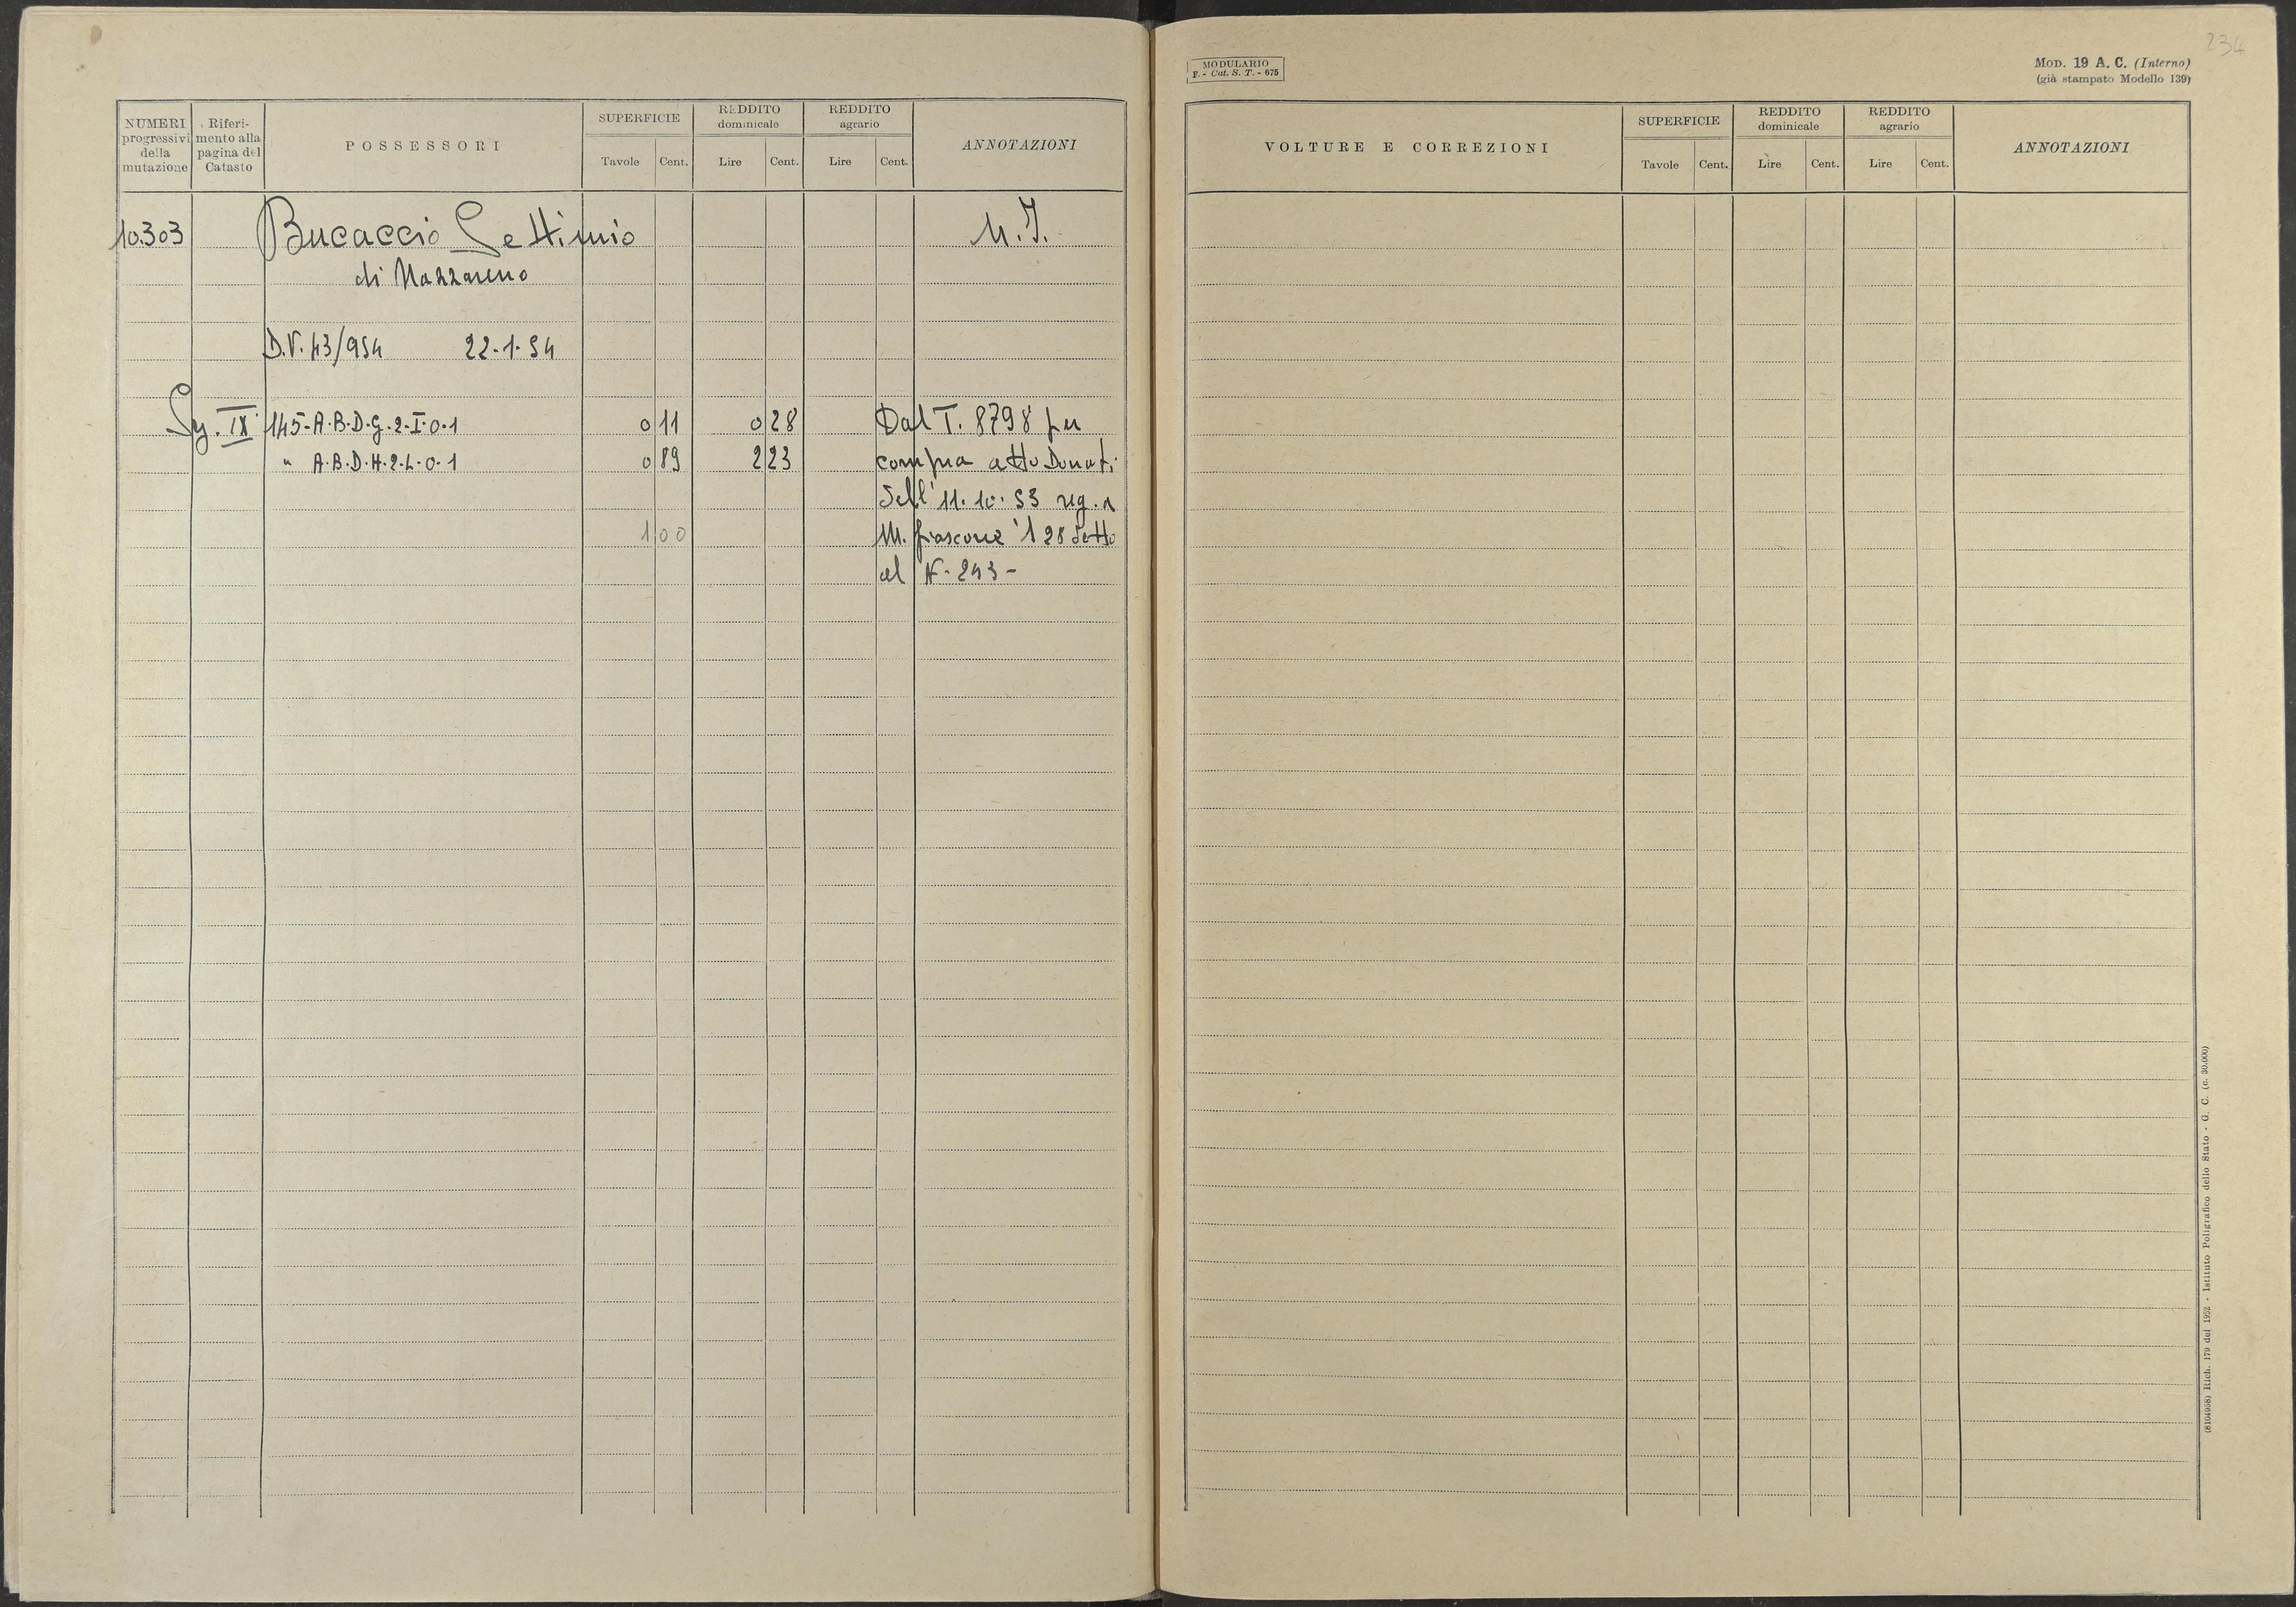 NUMERI progressivi della mutazione
Riferimento alla pagina del Catasto
POSSESSORI
SUPERFICIE
Tavole Cent.
REDDITO dominicale
Lire Cent.
REDDITO agrario
Lire Cent.
ANNOTAZIONI
10.303 Bucaccio Settimio M.I.
di Nazzareno
D.V. 43/954 22.1.54
Sez. IX 145-A.B.D.G.2.I.0.1 0 11 0 28 Dal T. 8798 per
" A.B.D.H.2.L.0.1 0 89 2 23 compra atto Donati
dell' 11.10.53 reg. a
1 00 M. fiascone 28 detto
al N. 243-
234
MODULARIO
F. - Cat. S. T. - 675
MOD. 19 A. C. (Interno)
(già stampato Modello 139)
VOLTURE E CORREZIONI
SUPERFICIE
Tavole Cent.
REDDITO dominicale
Lire Cent.
REDDITO agrario
Lire Cent.
ANNOTAZIONI
(8104958) Rich. 179 del 1952 - Istituto Poligrafico dello Stato - G. C. (c. 30.000)